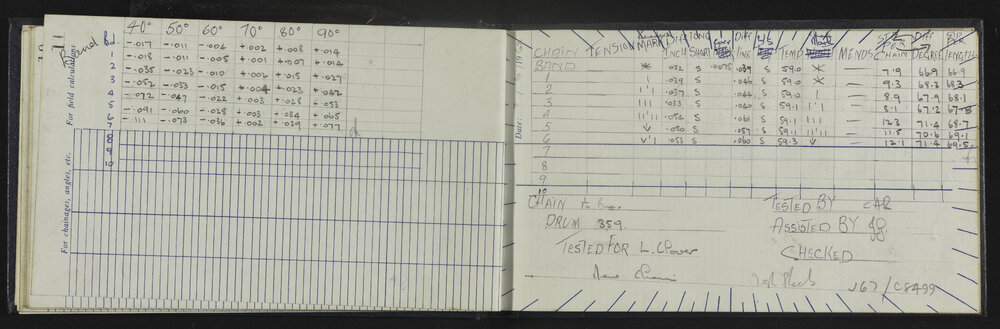 40° 50° 60° 70° 80° 90°
Bd -.017 -.011 -.004 +.002 +.008 +.014
1 -.018 -.011 -.005 +.001 +.007 +.014
2 -.035 -.023 -.010 +.002 +.015 +.027
3 -.052 -.033 -.015 +.004 +.023 +.042
4 -.072 -.047 -.022 +.003 +.028 +.053
5 -.091 -.060 -.028 +.003 +.034 +.065
6 -.111 -.073 -.036 +.002 +.039 +.077
7
8
9
10
For field calculations
For chainages, angles, etc.
Date:
19
CHAIN TENSION MARK INCH SHORT DIFF INE TEMP MENDS CHAIN DEGREE LENGTH
BAND * .032 S .0075 .039 S 59.0 * — 7.9 66.9 66.9
1 I .039 S .046 S 59.0 — 9.3 68.3 68.3
2 I'I .037 S .044 S 59.0 I — 8.9 67.9 68.1
3 III .033 S .040 S 59.1 I'I — 8.1 67.2 67.8
4 II'II .054 S .061 S 59.1 III — 12.3 71.4 68.7
5 .050 S .057 S 59.1 II'II — 11.5 70.6 69.1
6 .053 S .060 S 59.3 — 12.1 71.4 69.5
7
8
9
10
CHAIN
DRUM 359.
TESTED FOR L. Clover
New Chain
TESTED BY CAR
ASSISTED BY
CHECKED
J67/C8499